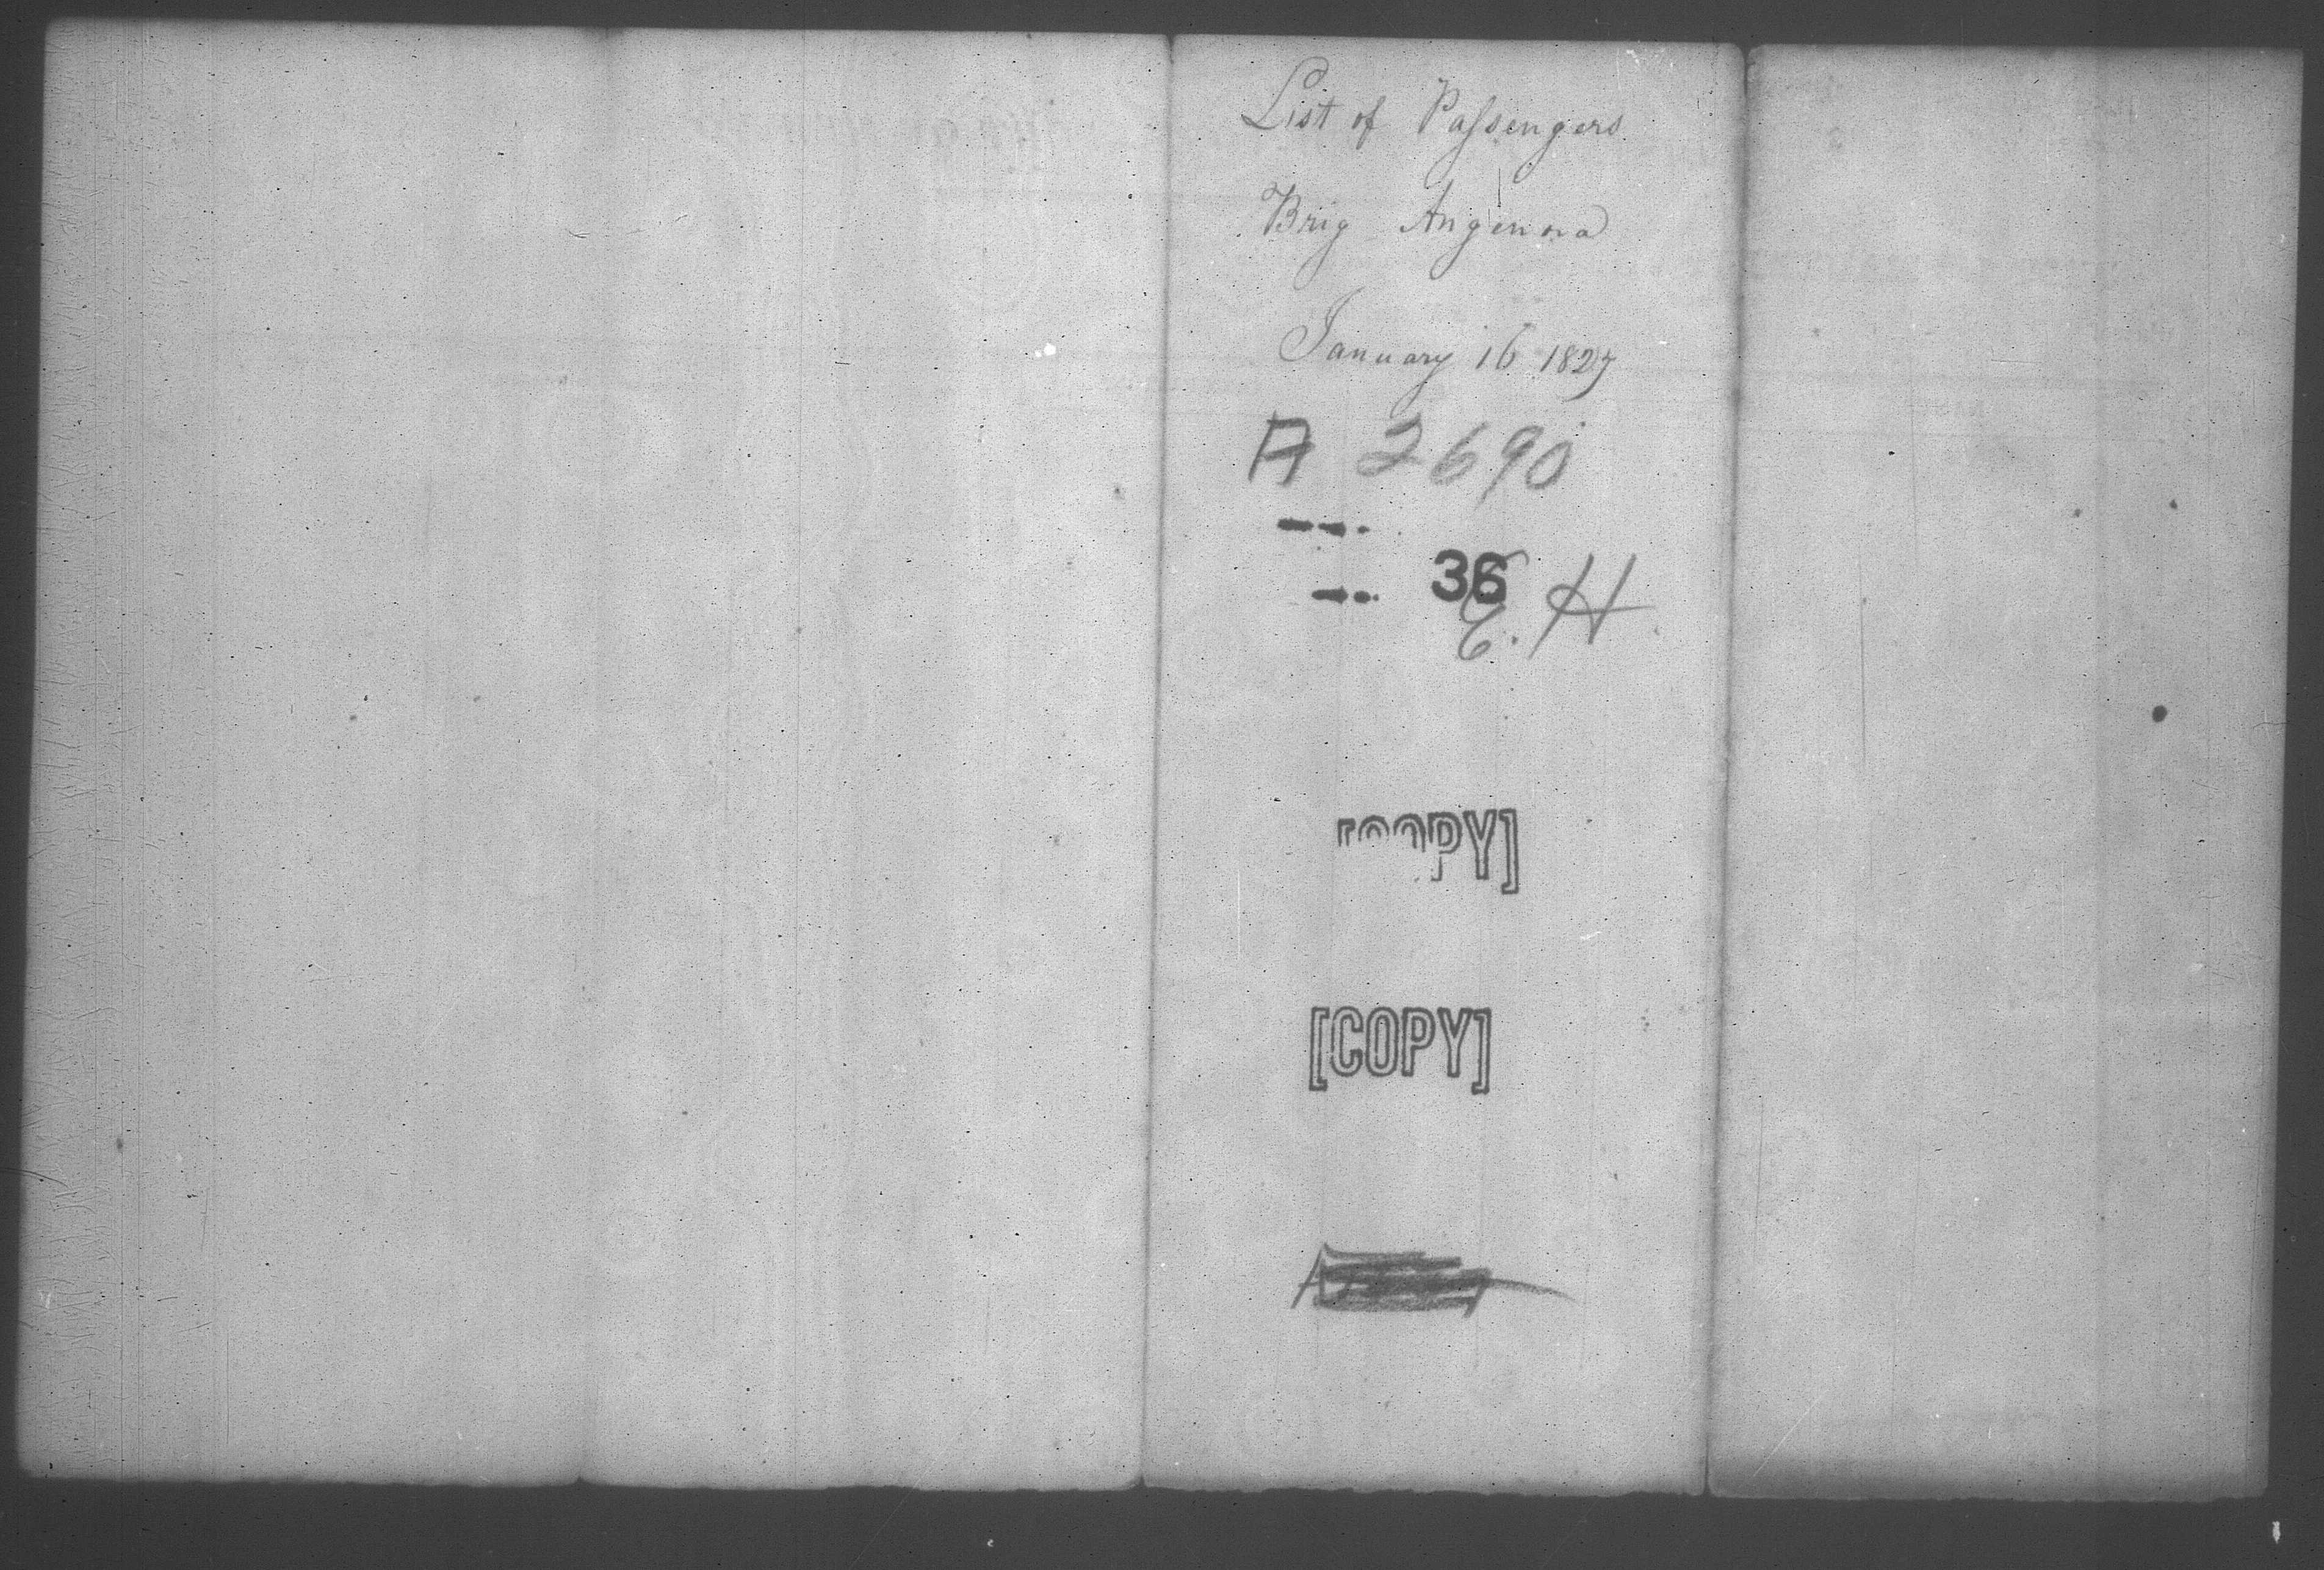 List of Passengers
Brig Angenora
January 16 1827
A 2690
36
E. H
[COPY]
[COPY]